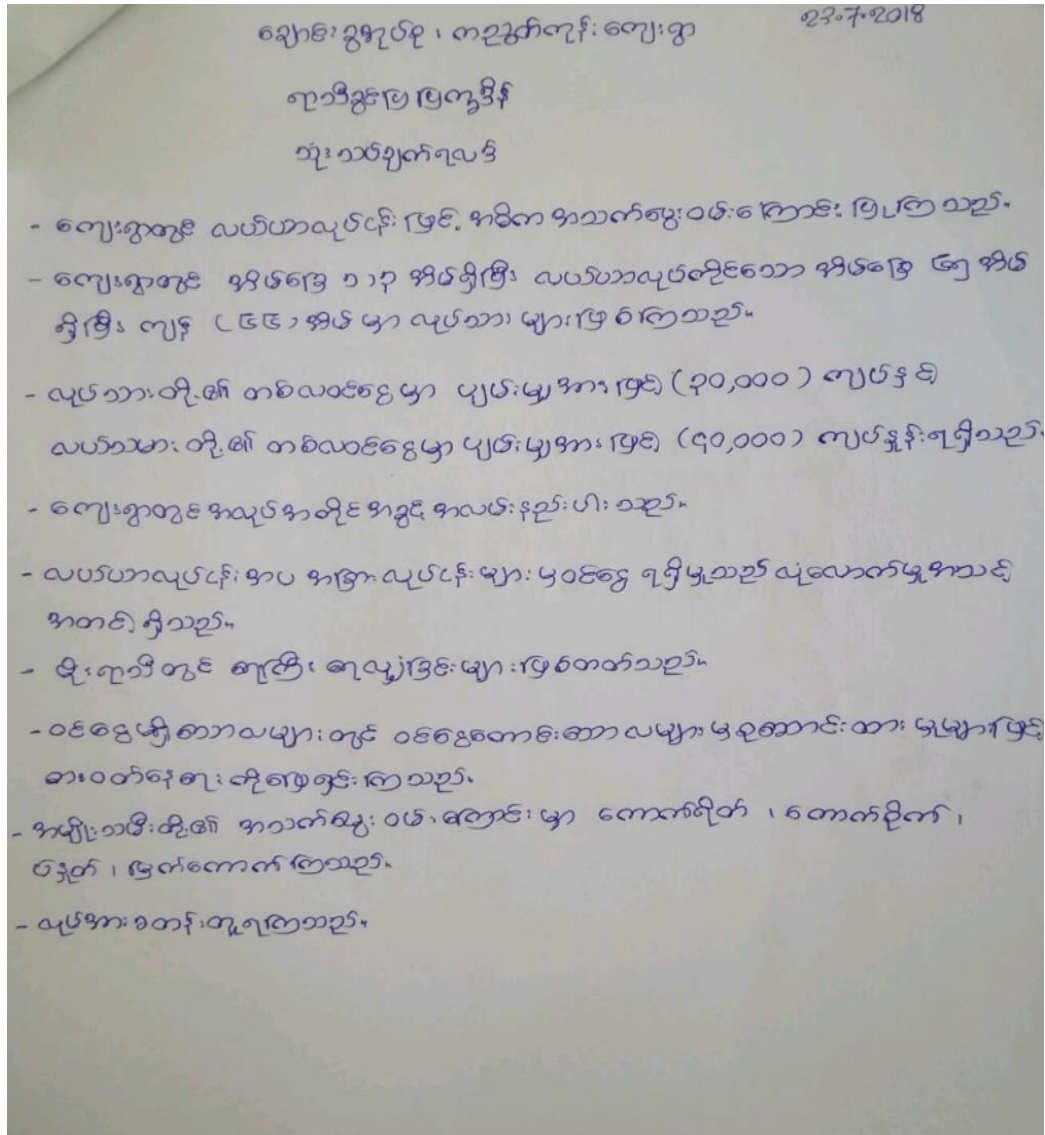 23.7.2018
ချောင်းခွအုပ်စု ၊ ကညွတ်ကုန်းကျေးရွာ
ရာသီခွင်ပြ ပြက္ခဒိန်
သုံးသပ်ချက်ရလဒ်
- ကျေးရွာတွင် လယ်ယာလုပ်ငန်းဖြင့် အဓိက အသက်မွေးဝမ်းကြောင်း ပြုကြသည်။
- ကျေးရွာတွင် အိမ်ခြေ ၁၁၃ အိမ်ရှိပြီး လယ်ယာလုပ်ကိုင်သော အိမ်ခြေ ၆၅ အိမ်
ရှိပြီး ကျန် (၆၆) အိမ် မှာ လုပ်သား များဖြစ်ကြသည်။
- လုပ်သားတို့၏ တစ်လဝင်ငွေမှာ ပျမ်းမျှအားဖြင့် (၃၀,၀၀၀) ကျပ်နှင့်
လယ်သမားတို့၏ တစ်လဝင်ငွေမှာ ပျမ်းမျှအားဖြင့် (၄၀,၀၀၀) ကျပ်နှုန်းရရှိသည်။
- ကျေးရွာတွင် အလုပ်အကိုင်အခွင့် အလမ်းနည်းပါးသည်။
- လယ်ယာလုပ်ငန်းအပ အခြားလုပ်ငန်းများမှဝင်ငွေ ရရှိမှုသည် လုံလောက်မှုအသင့်
အတင့်ရှိသည်။
- မိုးရာသီတွင် ရေကြီး ရေလျှံခြင်းများဖြစ်တတ်သည်။
- ဝင်ငွေမရှိသောလများတွင် ဝင်ငွေကောင်းသော လများမှစုဆောင်းထားမှုများဖြင့်
စားဝတ်နေရေးကိုဖြေရှင်းကြသည်။
- အမျိုးသမီးတို့၏ အသက်မွေးဝမ်းကြောင်းမှာ ကောက်ရိတ် ၊ ကောက်စိုက် ၊
ပဲနှုတ် ၊ မြက်ကောက်ကြသည်။
- လုပ်အားခတန်းတူရကြသည်။